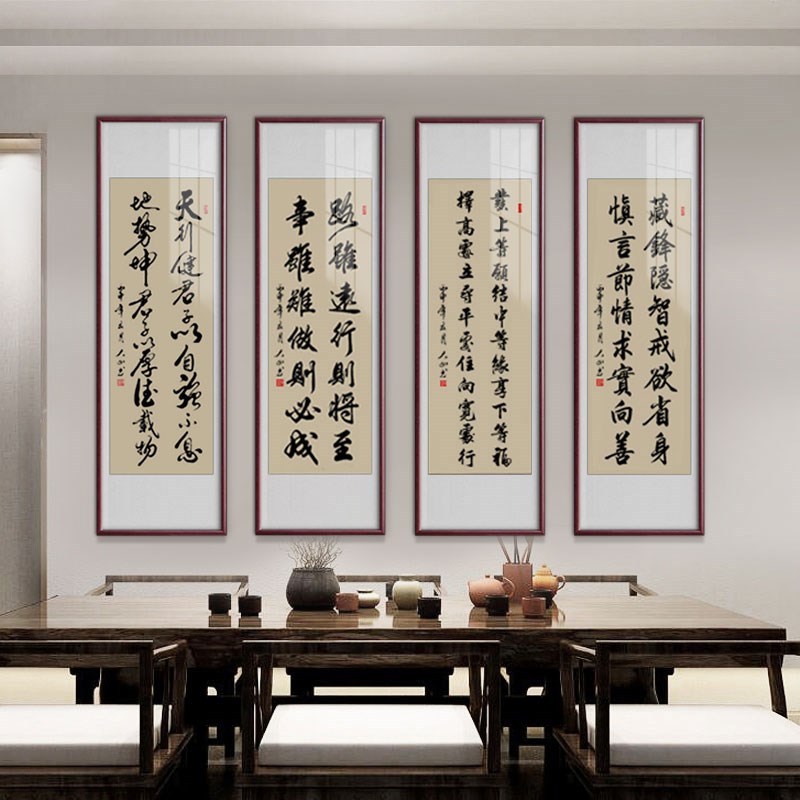 天行健君子以自強不息
地勢坤君子以厚德載物
路雖遠行則将至
事雖難做則必成
發上等願結中等緣享下等福
擇高處立尋平處住向寬處行
藏鋒隱智戒欲省身
慎言節情求實向善